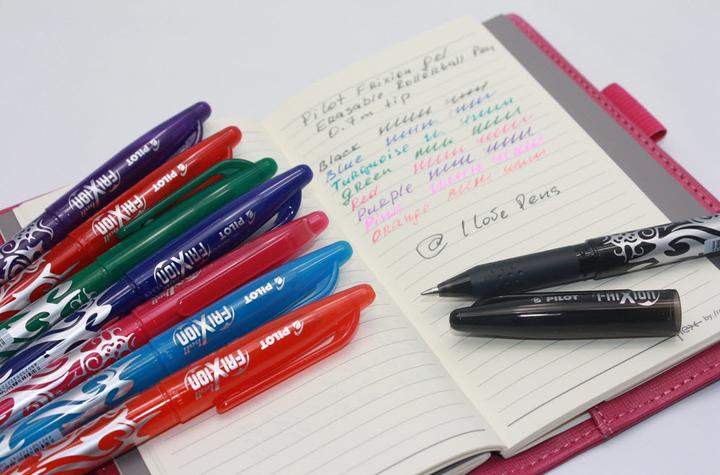 Pilot Frixion gel
Erasable Rollerball Pen
0.7m tip
Black
Blue
Turquoise
Green
Red
Purple
Pink
Orange
@ I Love Pens
PILOT FRIXION ball
PILOT FRIXION ball
PILOT FRIXION ball
PILOT FRIXION ball
PILOT FRIXION ball
PILOT FRIXION
next by